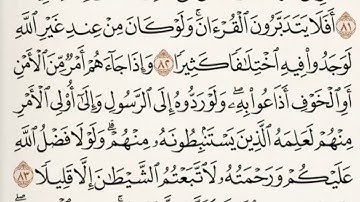 ٨١ أَفَلَا يَتَدَبَّرُونَ ٱلْقُرْءَانَۚ وَلَوْ كَانَ مِنْ عِندِ غَيْرِ ٱللَّهِ
لَوَجَدُوا۟ فِيهِ ٱخْتِلَٰفًا كَثِيرًا ٨٢ وَإِذَا جَآءَهُمْ أَمْرٌ مِّنَ ٱلْأَمْنِ
أَوِ ٱلْخَوْفِ أَذَاعُوا۟ بِهِۦۖ وَلَوْ رَدُّوهُ إِلَى ٱلرَّسُولِ وَإِلَىٰٓ أُو۟لِى ٱلْأَمْرِ
مِنْهُمْ لَعَلِمَهُ ٱلَّذِينَ يَسْتَنۢبِطُونَهُۥ مِنْهُمْۗ وَلَوْلَا فَضْلُ ٱللَّهِ
عَلَيْكُمْ وَرَحْمَتُهُۥ لَٱتَّبَعْتُمُ ٱلشَّيْطَٰنَ إِلَّا قَلِيلًا ٨٣